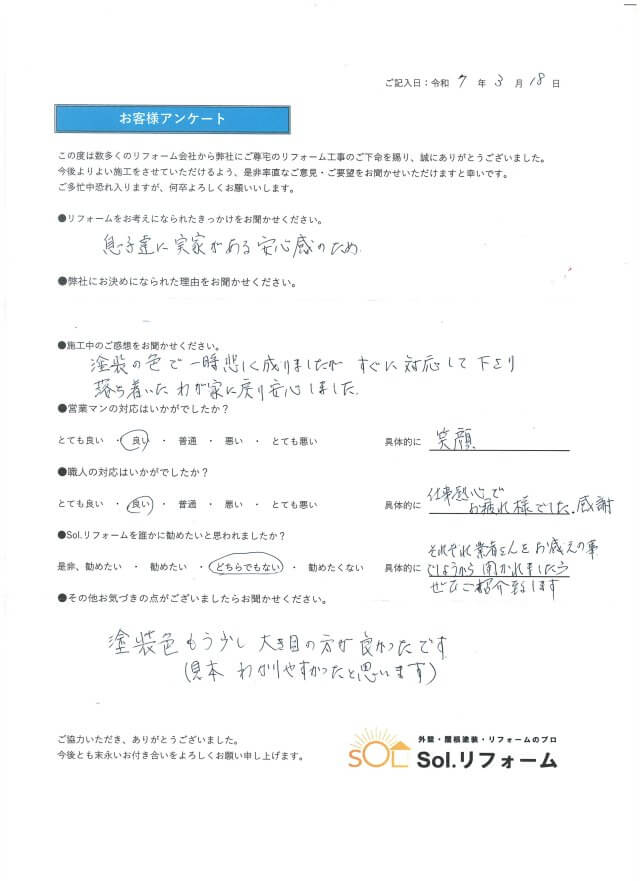 ご記入日：令和 7 年 3 月 18 日
お客様アンケート
この度は数多くのリフォーム会社から弊社にご尊宅のリフォーム工事のご下命を賜り、誠にありがとうございました。
今後よりよい施工をさせていただけるよう、是非率直なご意見・ご要望をお聞かせいただけますと幸いです。
ご多忙中恐れ入りますが、何卒よろしくお願いいします。
●リフォームをお考えになられたきっかけをお聞かせください。
息子達に実家がある安心感のため
●弊社にお決めになられた理由をお聞かせください。
●施工中のご感想をお聞かせください。
塗装の色で一時悲しく成りましたが すぐに対応して下さり
落ち着いたわが家に戻り安心しました.
●営業マンの対応はいかがでしたか？
とても良い ・ 良い ・ 普通 ・ 悪い ・ とても悪い 具体的に 笑顔
●職人の対応はいかがでしたか？
とても良い ・ 良い ・ 普通 ・ 悪い ・ とても悪い 具体的に 仕事熱心で
お疲れ様でした.感謝
●Sol.リフォームを誰かに勧めたいと思われましたか？
是非、勧めたい ・ 勧めたい ・ どちらでもない ・ 勧めたくない 具体的に それぞれ業者さんをお考えの事
でしょうから 聞かれましたら
ぜひご紹介致します
●その他お気づきの点がございましたらお聞かせください。
塗装色もう少し大き目の方が良かったです
(見本 わかりやすかったと思います)
ご協力いただき、ありがとうございました。
今後とも末永いお付き合いをよろしくお願い申し上げます。
SOL
外壁・屋根塗装・リフォームのプロ
Sol.リフォーム